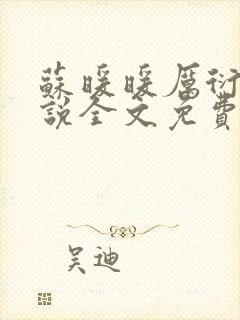 蘇暖暖厲衍
說全文免費
吴迪